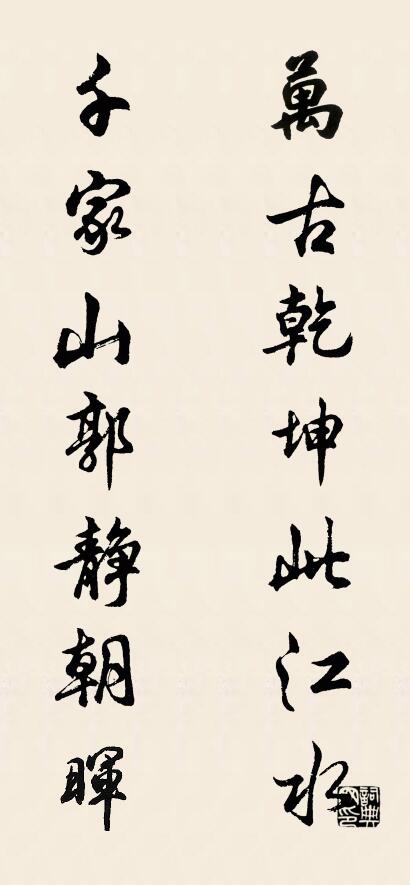 萬古乾坤此江水
千家山郭静朝暉